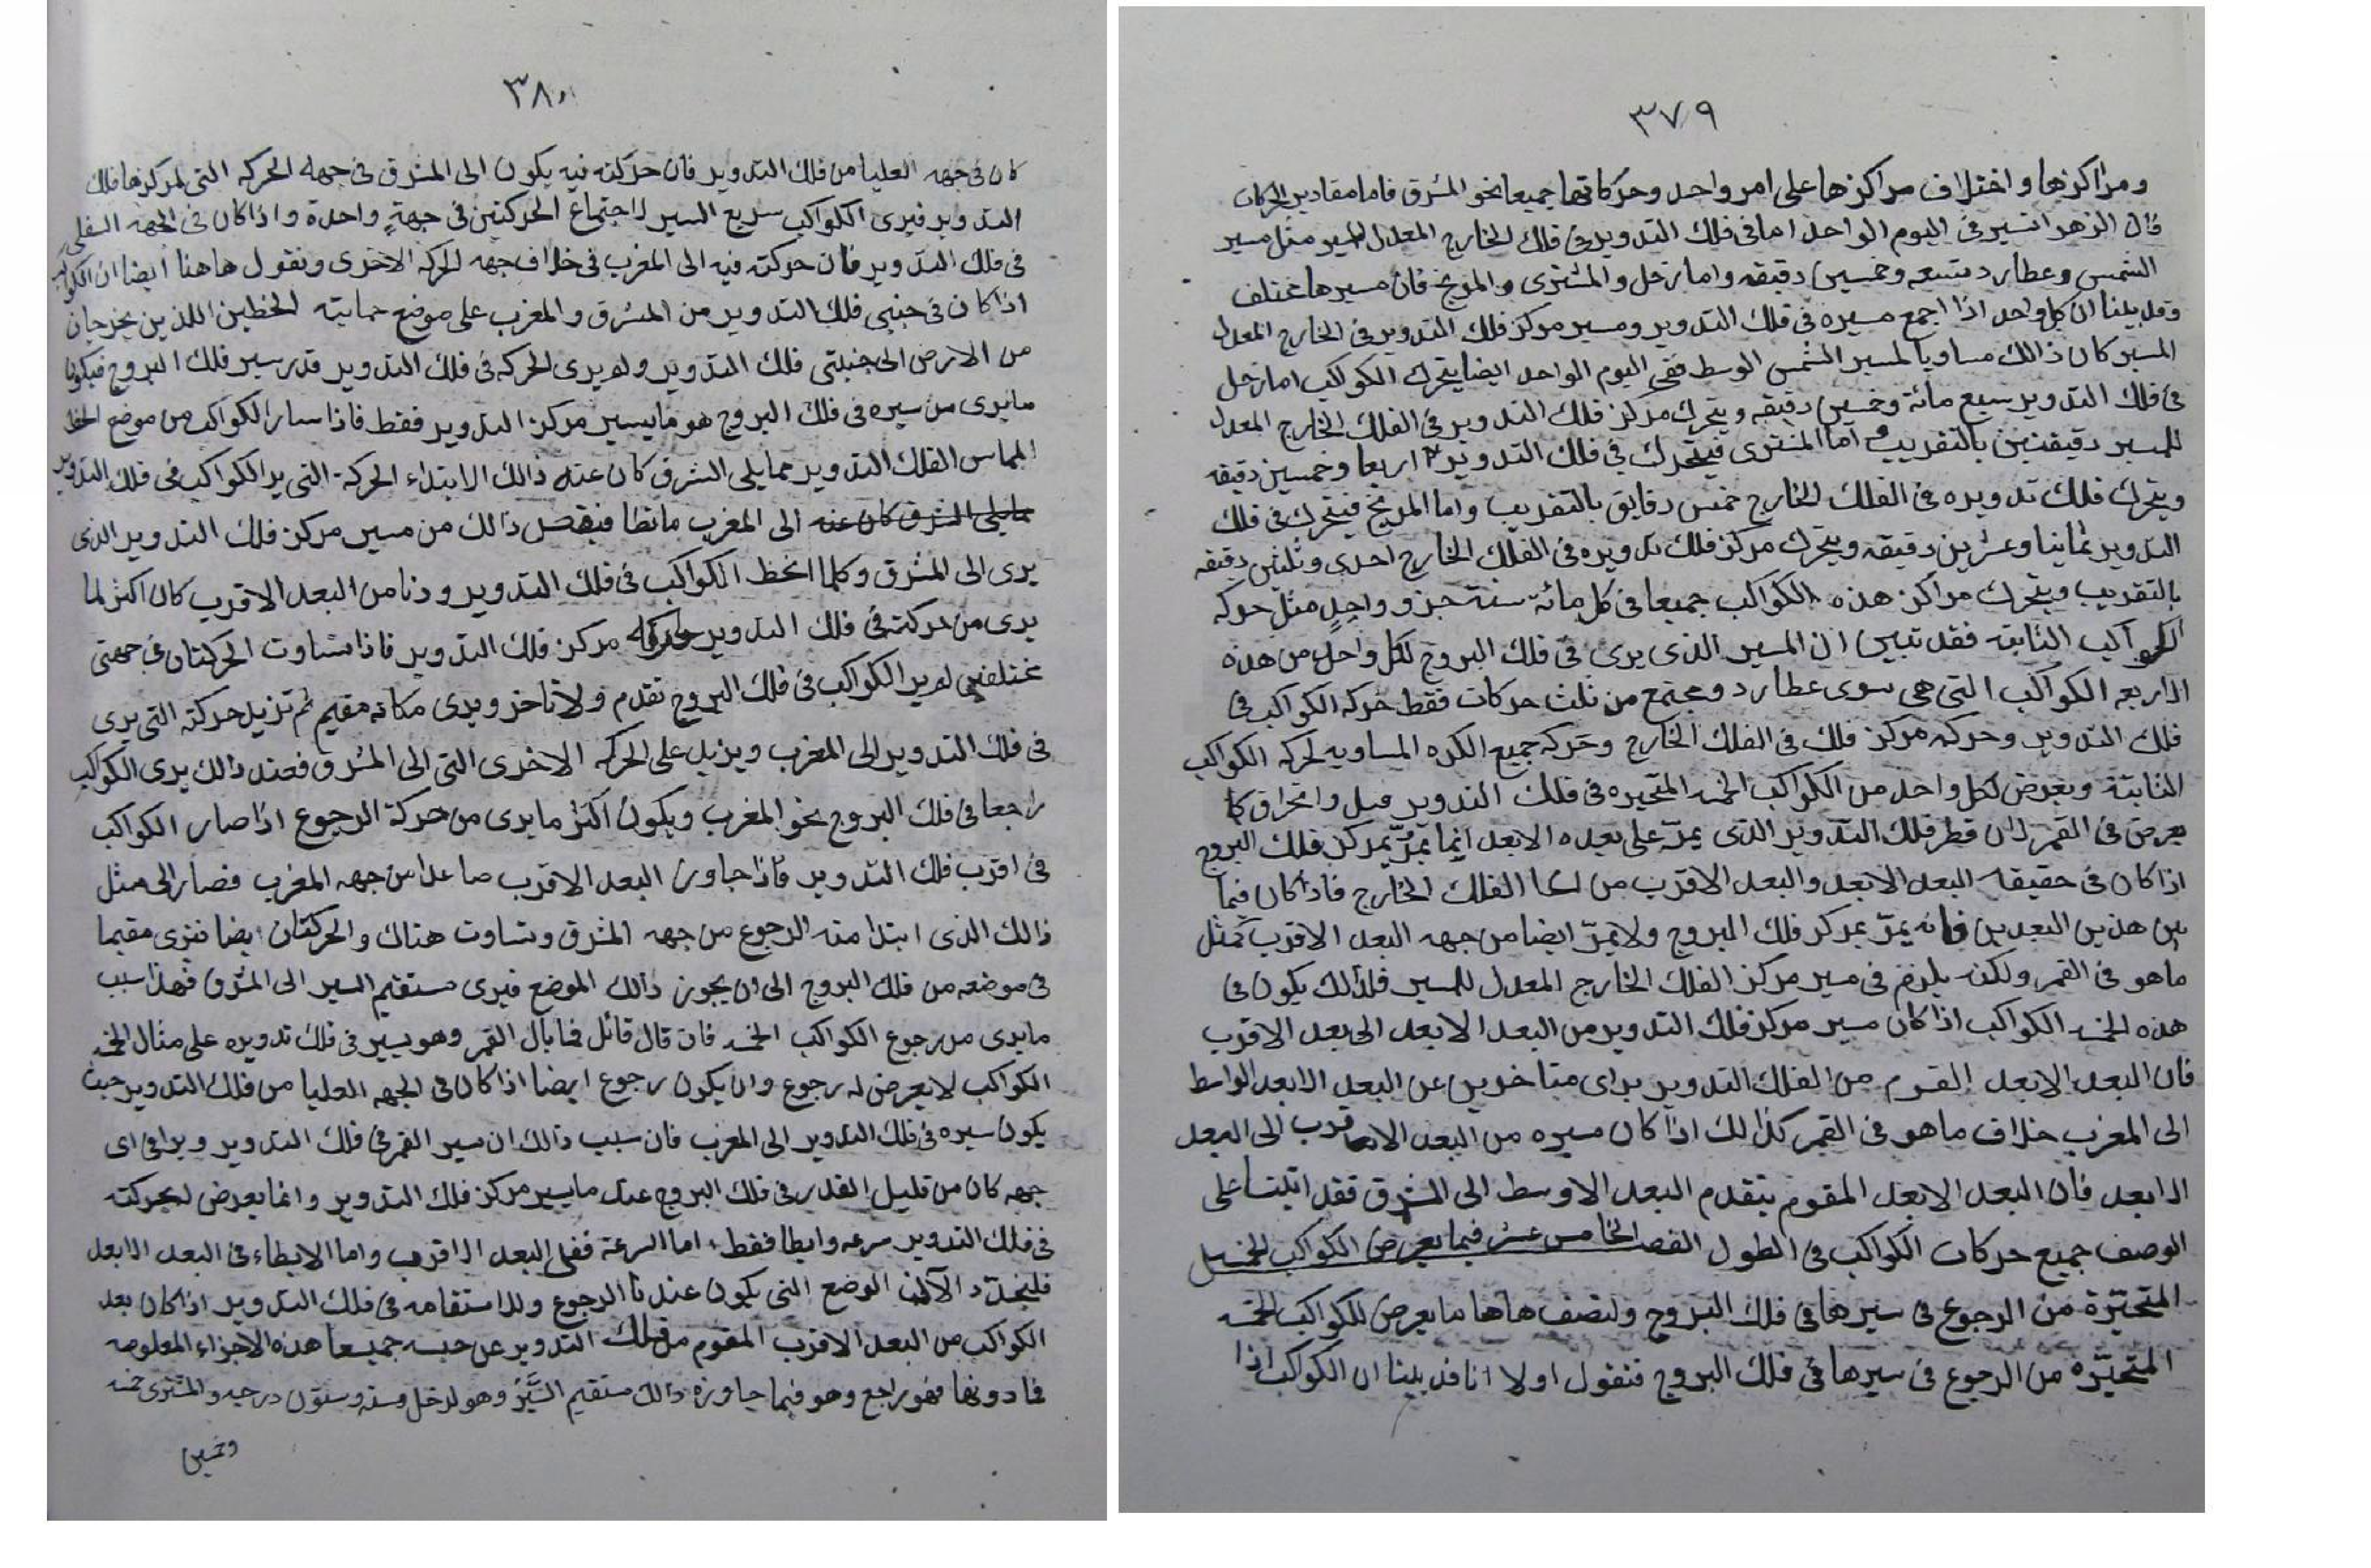 ٣٧٩
ومراكزها واختلاف مراكزها على امر واحد وحركاتها جميعا نحو المشرق فاما مقادير الحركات
فان الزهرا تسير في اليوم الواحد اما في فلك التدوير وفي فلك الخارج المعدل المسير مثل مسير
الشمس وعطارد تسعه وخمسين دقيقه واما زحل والمشترى والمريخ فان مسيرها مختلف
وقد بينا ان كل واحد اذا اجمع مسيره في فلك التدوير ومسير مركز فلك التدوير في الخارج المعدل
المسير كان ذالك مساويا لمسير الشمس الوسط ففي اليوم الواحد ايضا يتحرك الكواكب اما زحل
في فلك التدوير سبع مائة وخمسين دقيقه ويتحرك مركز فلك التدوير في الفلك الخارج المعدل
للمسير دقيقتين بالتقريب و اما المشترى فيتحرك في فلك التدوير اربعا وخمسين دقيقه
ويتحرك فلك تدويره في الفلك الخارج خمس دقايق بالتقريب واما المريخ فيتحرك في فلك
التدوير ثمانيا وعشرين دقيقه ويتحرك مركز فلك تدويره في الفلك الخارج احدى وثلثين دقيقه
بالتقريب ويتحرك مراكز هذه الكواكب جميعا في كل مائة سنة جزو واحدٍ مثل حركه
الكواكب الثابته فقد تبين ان المسير الذى يرى في فلك البروج لكل واحد من هذه
الاربعه الكواكب التى هى سوى عطارد ومجتمع من ثلث حركات فقط حركه الكواكب في
فلك التدوير وحركه مركز فلك في الفلك الخارج وحركه جميع الكره المساويه لحركه الكواكب
الثابتة ويعرض لكل واحد من الكواكب الخمسه المتحيره في فلك التدوير ميل وانحراق كا
يعرض في القمر لان قطر فلك التدوير الذى يمرّ على بعده الابعد انما يمرّ بمركز فلك البروج
اذا كان في حقيقة البعد الابعد والبعد الاقرب من الفلك الخارج فاذا كان فيما
بين هذين البعدين فانه يمرّ بمركز فلك البروج ولا يمرّ ايضا من جهه البعد الاقرب كمثل
ماهو في القمر ولكنه يلزم في مسير مركز الفلك الخارج المعدل للمسير فلذلك يكون في
هذه الخمسه الكواكب اذا كان مسير مركز فلك التدوير من البعد الابعد الى بعد الاقرب
فان البعد الابعد القوم من الفلك التدوير يراى متاخرين عن البعد الابعد الواسط
الى المغرب خلاف ماهو في القمر كذالك اذا كان مسيره من البعد الاقرب الى البعد
الابعد فان البعد الابعد المقوم يتقدم البعد الاوسط الى المشرق فقد اتينا على
الوصف جميع حركات الكواكب في الطول الفصل الخامس عشر فيما يعرض الكواكب الخمسه
المتحيّرة من الرجوع في سيرها في فلك البروج ولنصف هاها ما يعرض للكواكب الخمسه
المتحيّره من الرجوع في سيرها في فلك البروج فنقول اولا انا قد بينا ان الكواكب اذا
٣٨٠
كان في جهه العليا من فلك التدوير فان حركته فيه يكون الى المشرق في جهه الحركه التى لمركزها فلك
التدوير فيرى الكواكب سريع السير لاجتماع الحركتين في جهةٍ واحدة واذا كان في الجهه السفلى
في فلك التدوير فان حركته فيه الى المغرب في خلاف جهه الحركه الاخرى ونقول هاهنا ايضا ان الكواكب
اذا كان في جنبى فلك التدوير من المشرق والمغرب على موضع الخطين اللذين يخرجان
من الارض الى جنبتى فلك التدوير ولم يرى الحركه في فلك التدوير قدر سير فلك البروج فيكون
مايرى من سيره في فلك البروج هو مايسير مركز التدوير فقط فاذا سار الكواكب من موضع الخط
المماس الفلك التدوير مما يلى الشرق كان عنه ذالك الابتداء الحركة التى ير الكواكب في فلك التدوير
مايلى المشرق كان عنه الى المغرب ما نظا فينقص ذالك من مسير مركز فلك التدوير الذى
يرى الى المشرق وكلما انحظ الكواكب في فلك التدوير ودنا من البعد الاقرب كان اكثر لما
يرى من حركته في فلك التدوير مركز فلك التدوير فاذا تساوت الحركتان في جهتى
مختلفين لم ير الكواكب في فلك البروج تقدم ولا تاخر ويرى مكانه مقيم ثم تزيد حركته التى يرى
في فلك التدوير الى المغرب ويزيد على الحركه الاخرى التى الى المشرق فعند ذالك يرى الكواكب
راجعا في فلك البروج نحو المغرب ويكون اكثر مايرى من حركة الرجوع اذا صار الكواكب
في اقرب فلك التدوير فاذا جاوز البعد الاقرب صاعدا من جهه المغرب فصار الى مثل
ذالك الذى ابتدا منه الرجوع من جهه المشرق وتساوت هناك والحركتان ايضا فترى مقيما
في موضعه من فلك البروج الى ان يجوز ذالك الموضع فيرى مستقيم السير الى المشرق فهذا سبب
مايرى من رجوع الكواكب الخمسه فان قال قائل فما بال القمر وهو يسير في فلك تدويره على مثال الخمسه
الكواكب لا يعرض له رجوع وان يكون رجوع ايضا اذا كان في الجهه العليا من فلك التدوير حيث
يكون سيره في فلك التدوير الى المغرب فان سبب ذالك ان سير القمر في فلك التدوير ويرا في اى
جهه كان من قليل القدر في فلك البروج عند مايسير مركز فلك التدوير وانما يعرض لحركته
في فلك التدوير سرعه وابطا فقط اما السرعة ففى البعد الاقرب واما الابطاء في البعد الابعد
فليحدّد الآن الوضع التى يكون عندنا الرجوع والاستقامه في فلك التدوير اذا كان بعد
الكواكب من البعد الاقرب المقوم من فلك التدوير عن جنبيه جميعا هذه الاجزاء المعلومه
فما دونها فهو راجع وهو فيما جاوزه ذالك مستقيم السَّيْر وهو لزحل وسته وستون درجه والمشترى خمسه
وخمسين